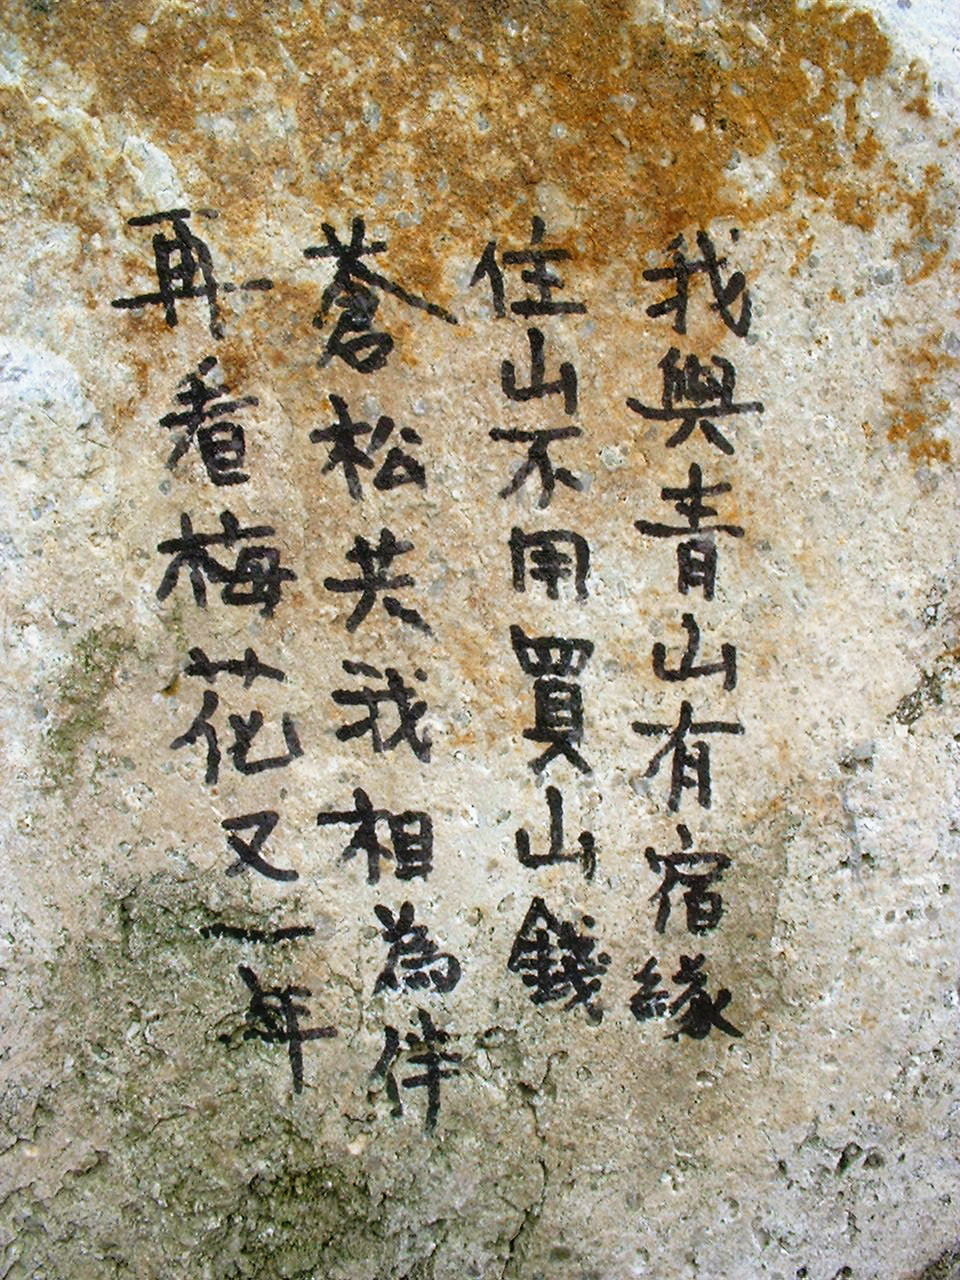 我與青山有宿緣
住山不用買山錢
蒼松共我相為伴
再看梅花又一年